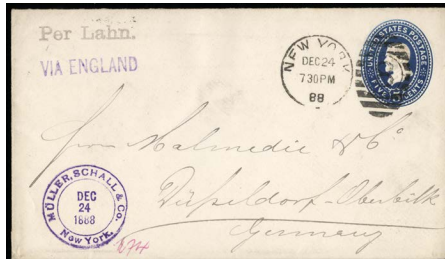 Per Lahn.
VIA ENGLAND
NEW YORK
DEC 24
7 30 PM
88
UNITED STATES POSTAGE
FIVE CENTS
Malmedie & Co
Düsseldorf-Oberbilk
Germany
MÜLLER, SCHALL & CO.
DEC
24
1888
New York.